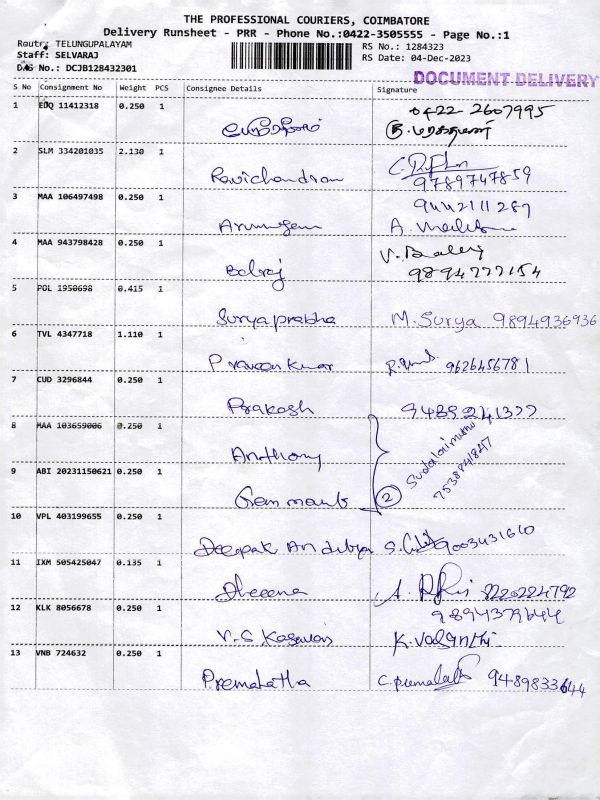 THE PROFESSIONAL COURIERS, COIMBATORE
Delivery Runsheet - PRR - Phone No.:0422-3505555 - Page No.:1
Route: TELUNGUPALAYAM RS No.: 1284323
Staff: SELVARAJ RS Date: 04-Dec-2023
DRS No.: DCJB128432301
DOCUMENT DELIVERY
S No Consignment No Weight PCS Consignee Details Signature
1 EDQ 11412318 0.250 1 0422 2607995
2 SLM 334201035 2.130 1 Ravichandran 9789747859
3 MAA 106497498 0.250 1 Arumugam 9442111287 A.
4 MAA 943798428 0.250 1 Balraj V. 9894777154
5 POL 1950698 0.415 1 Suryaprabha M. Surya 9894936936
6 TVL 4347718 1.110 1 Praveen kumar 9626456781
7 CUD 3296844 0.250 1 Prakash 9489241377
8 MAA 103659006 0.250 1 Anthony
9 ABI 20231150621 0.250 1 2 Sudalaimuthu 7538841847
10 VPL 403199655 0.250 1 Deepak 9003431610
11 IXM 505425047 0.135 1 Dheena A. 8220224792
12 KLK 8056678 0.250 1 V.S 9894379644 K. Vasanthi
13 VNB 724632 0.250 1 Premalatha C. premalatha 9489833644